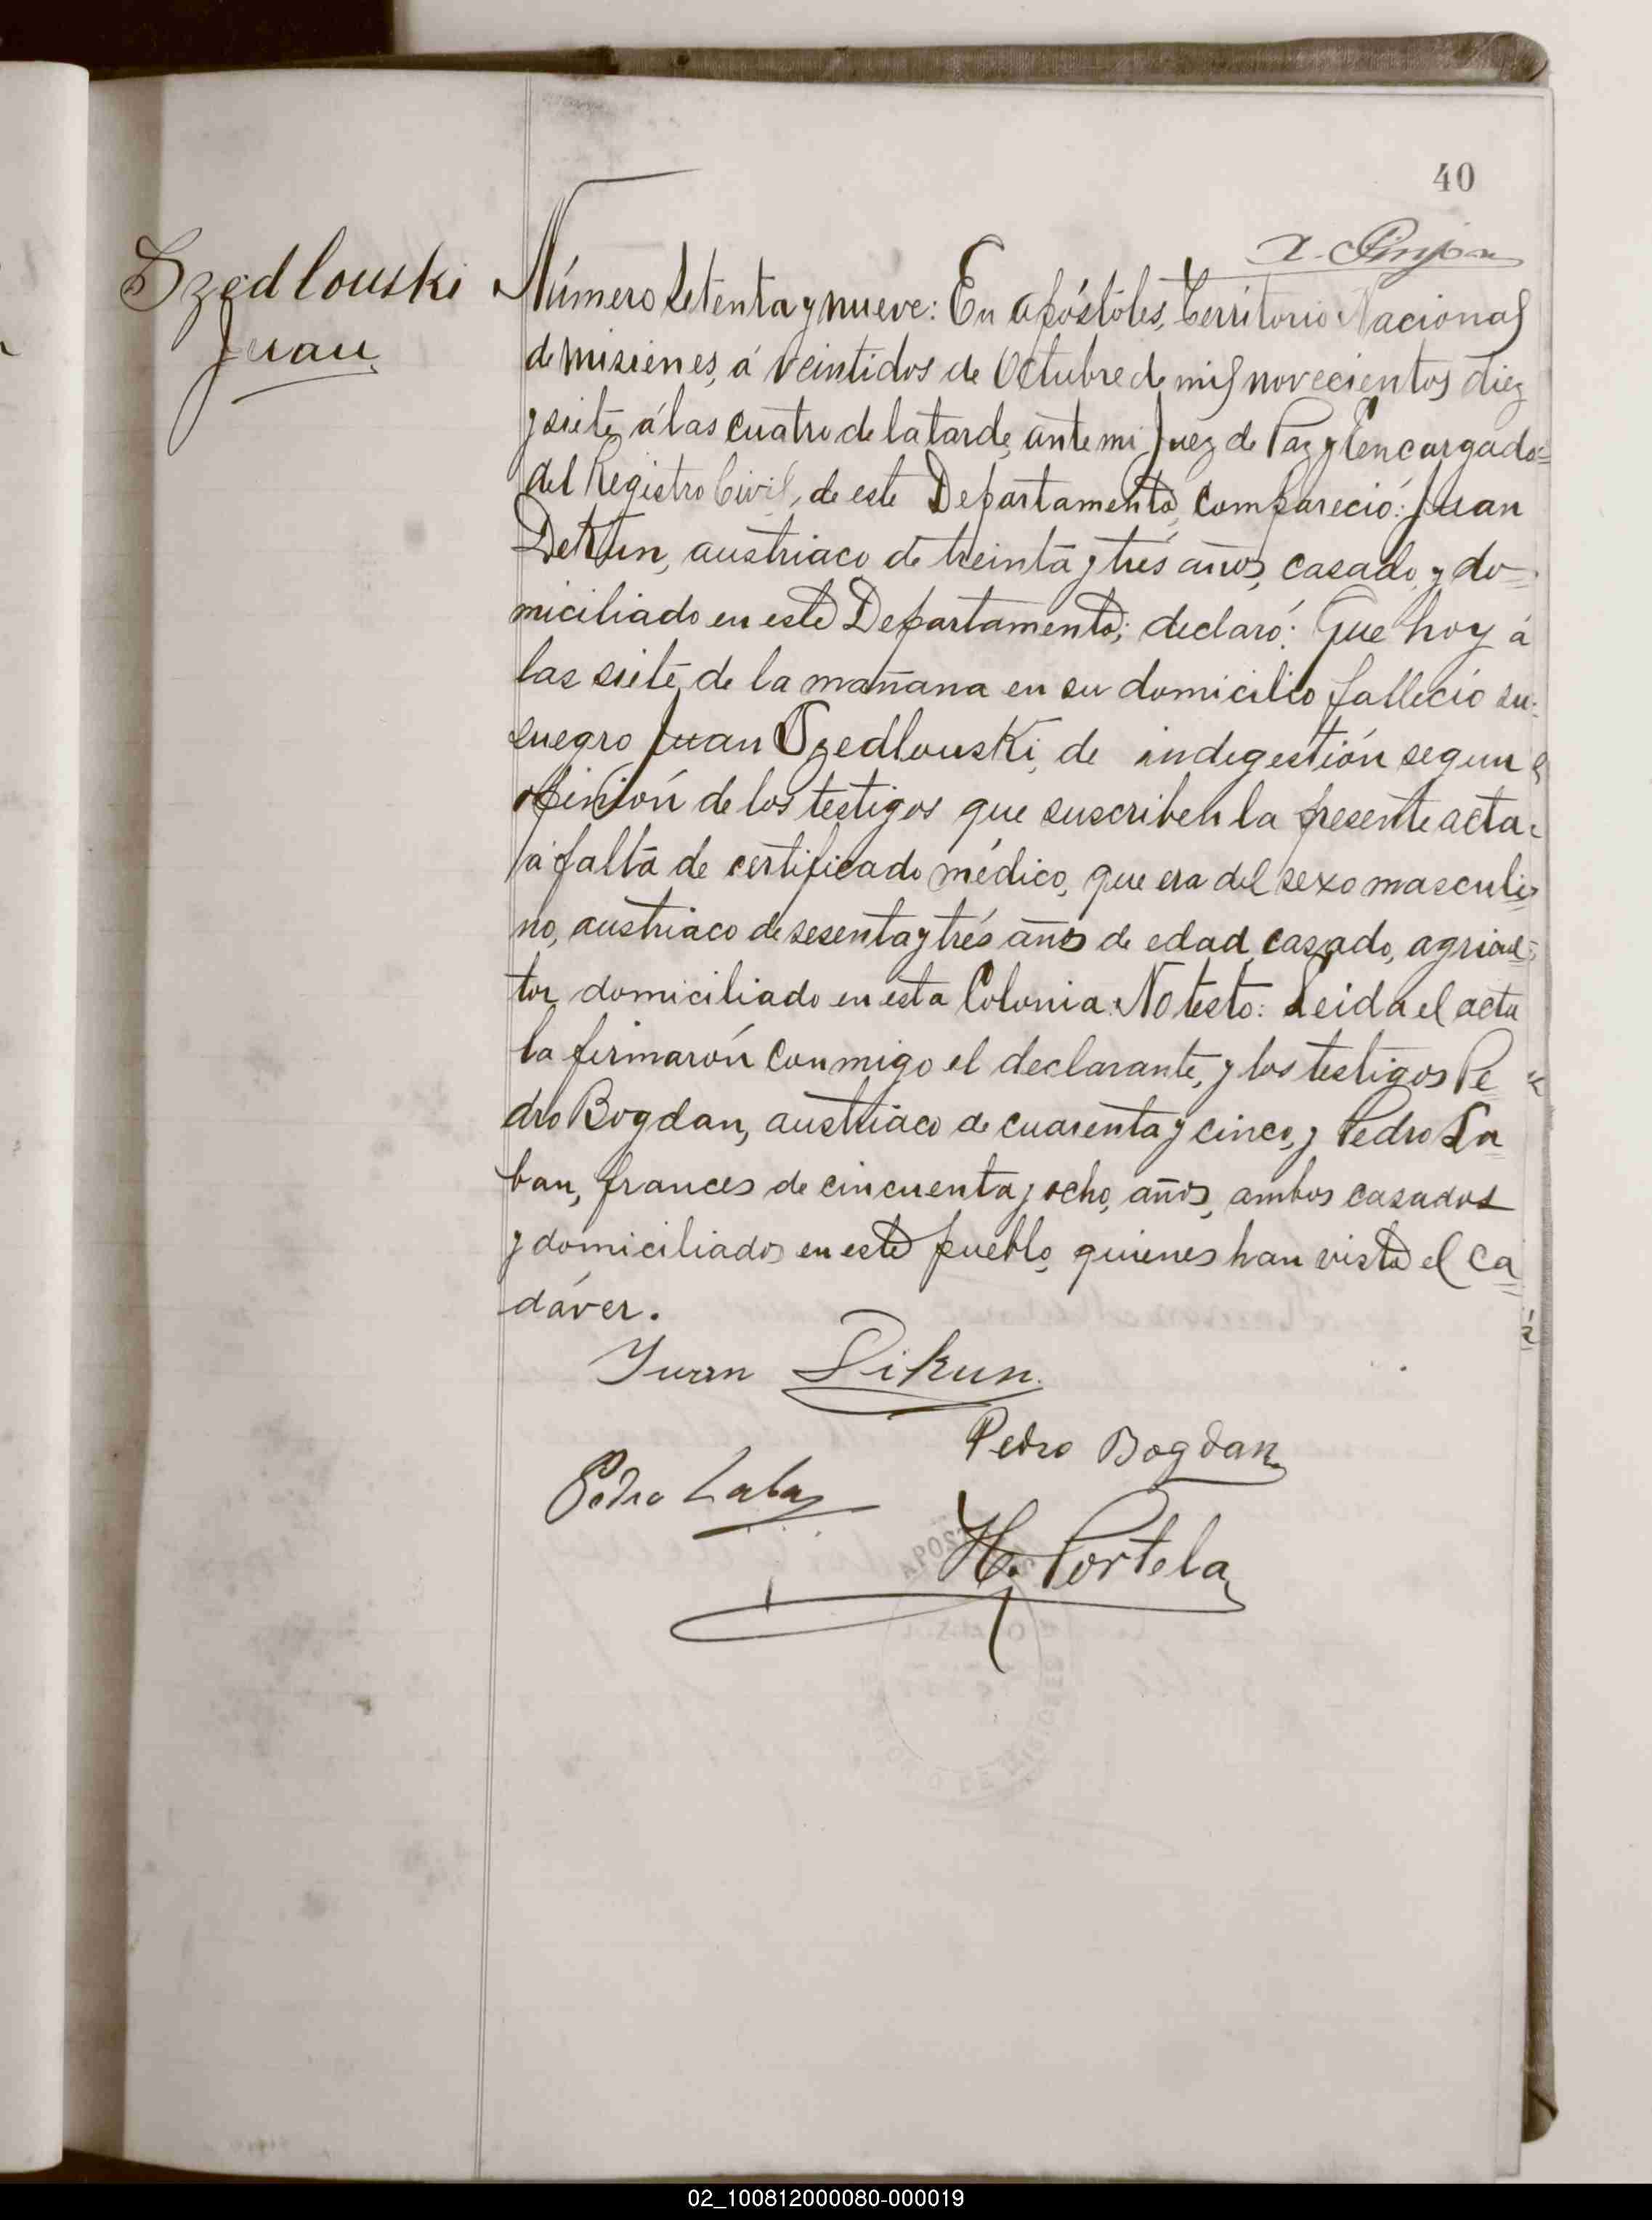 40
Szedlouski
Juan
Número Setenta y nueve: En Apóstoles, Territorio Nacional
de Misiones, á veintidos de Octubre de mil novecientos diez
y siete, á las cuatro de la tarde, ante mi Juez de Paz y Encargado=
del Registro Civil, de este Departamento, compareció: Juan
Dekun, austriaco de treinta y trés años, casado, y do=
miciliado en este Departamento; declaró: Que hoy á
las siete, de la mañana en su domicilio falleció su=
suegro Juan Szedlouski, de indigestión segun
opinión de los testigos que suscriben la presente acta=
á falta de certificado médico, que era del sexo masculi=
no, austriaco de sesenta y trés años de edad, casado, agricul=
tor, domiciliado en esta Colonia. No testó: Leida el acta
la firmarón conmigo el declarante, y los testigos Pe
dro Bogdan, austriaco de cuarenta y cinco, y Pedro La
ban, frances de cincuenta y ocho, años, ambos casados
y domiciliados en este pueblo, quienes han visto el ca=
dáver.
Juan Dikun.
Pedro Bogdan
Pedro Laban
H. Portela
02_100812000080-000019